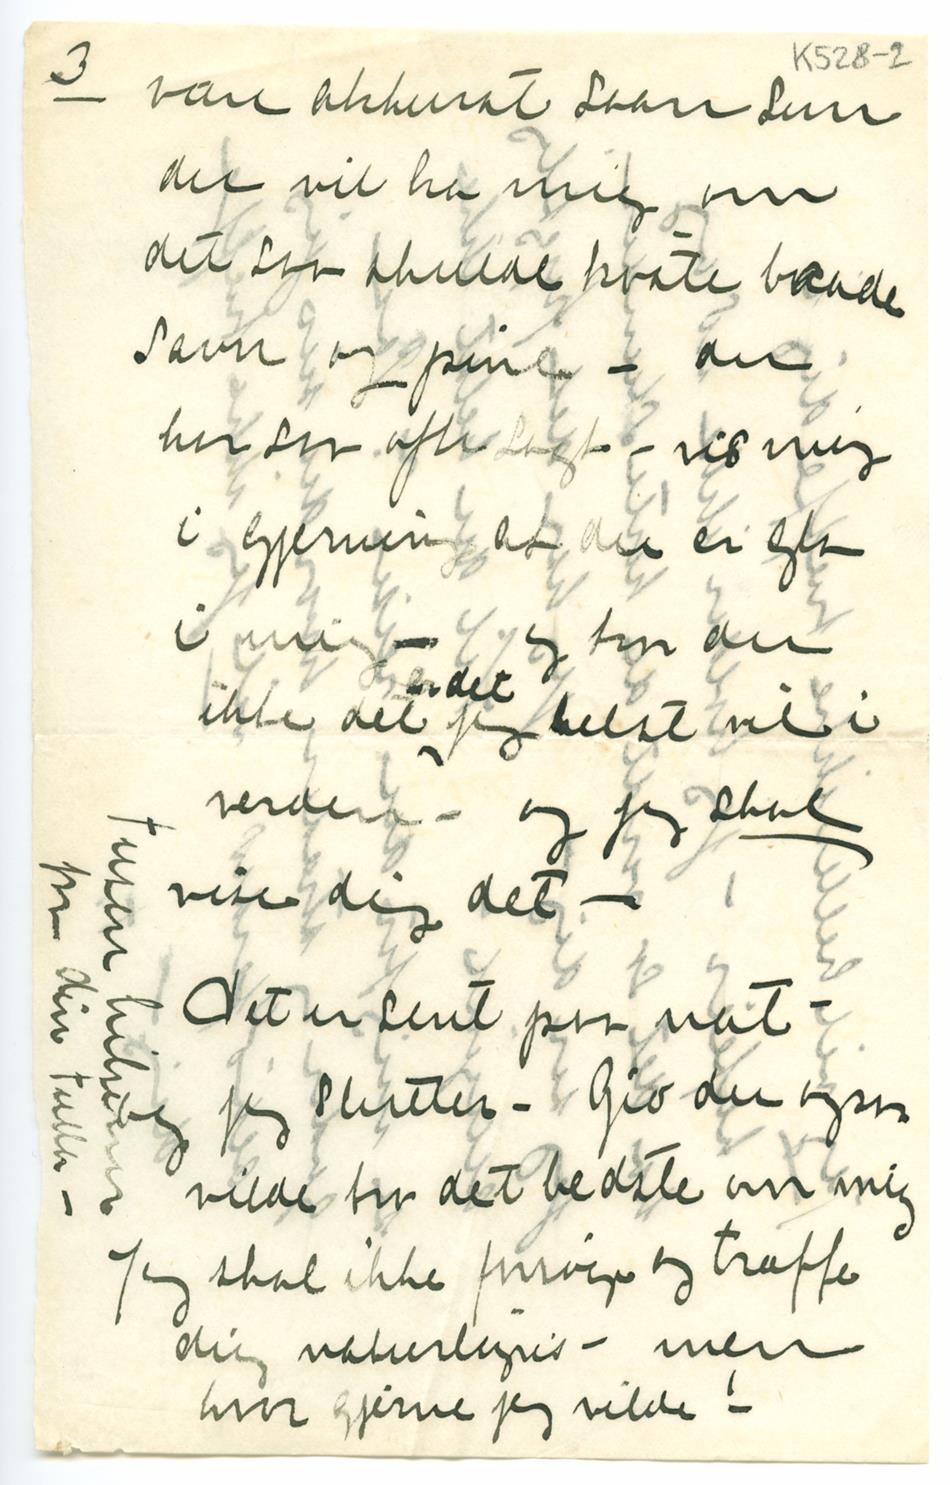 3
K528-2
være akkurat saan som
du vil ha mig om
det saa skulde koste baade
savn og pine - du
har saa ofte sagt - vis mig
i gjerning at du er gla
i mig - og tror du
ikke det er det jeg helst vil i
verden - og jeg skal
vise dig det -
Det er sent paa nat -
jeg slutter - Gid du ogsaa
vilde tro det bedste om mig
Jeg skal ikke forsøge og træffe
dig naturligvis - men
hvor gjerne jeg vilde! -
Tusen hilsener
fra din Tulla -